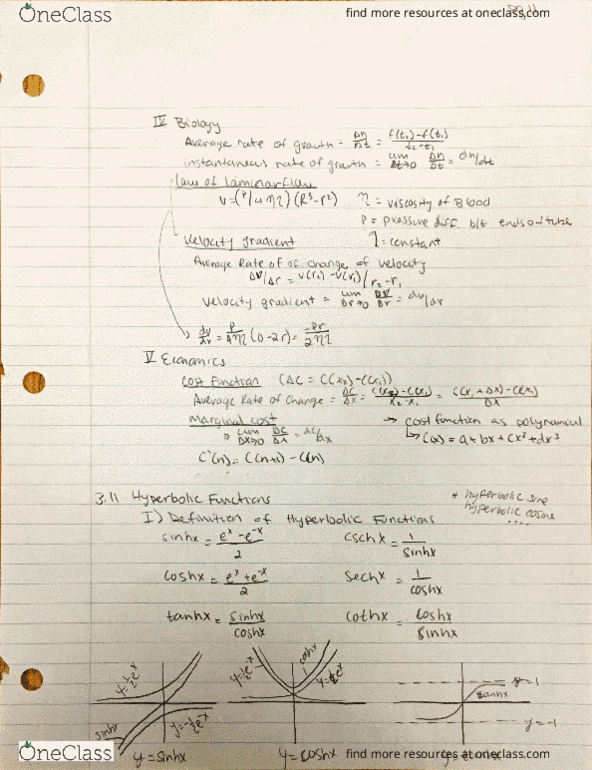 OneClass
find more resources at oneclass.com
IV Biology
Average rate of growth = Δn/Δt = f(t₂)-f(t₁)/t₂-t₁
instantaneous rate of growth = lim Δt→0 Δn/Δt = dn/dt
law of laminar flow
v=(P/4ηl)(R³-r²) η = viscosity of Blood
P = pressure diff. b/t ends of tube
velocity gradient l = constant
Average Rate of of change of velocity
ΔV/Δr = v(r₂)-v(r₁)/r₂-r₁
velocity gradient = lim Δr→0 ΔV/Δr = dv/dr
dv/dr = P/4ηl (0-2r) = -Pr/2ηl
V Economics
Cost Function (ΔC = C(x₂)-C(x₁))
Average Rate of Change = ΔC/Δx = C(x₂)-C(x₁)/x₂-x₁ = C(x₁+Δx)-C(x₁)/Δx
marginal cost → cost function as polynomical
→ lim Δx→0 ΔC/Δx = dC/dx ↳ C(x) = a+bx+cx²+dx³
C'(n) = C(n+1) - C(n)
3.11 Hyperbolic Functions * hyperbolic sine
hyperbolic cosine
....
I) Definition of Hyperbolic Functions
sinhx = eˣ-e⁻ˣ/2 cschx = 1/sinhx
coshx = eˣ+e⁻ˣ/2 sechx = 1/coshx
tanhx = sinhx/coshx cothx = coshx/sinhx
y=½eˣ y=½e⁻ˣ coshx y=½eˣ y=1
tanhx
sinhx y=-½e⁻ˣ y=-1
y=sinhx y=coshx
OneClass
find more resources at oneclass.com